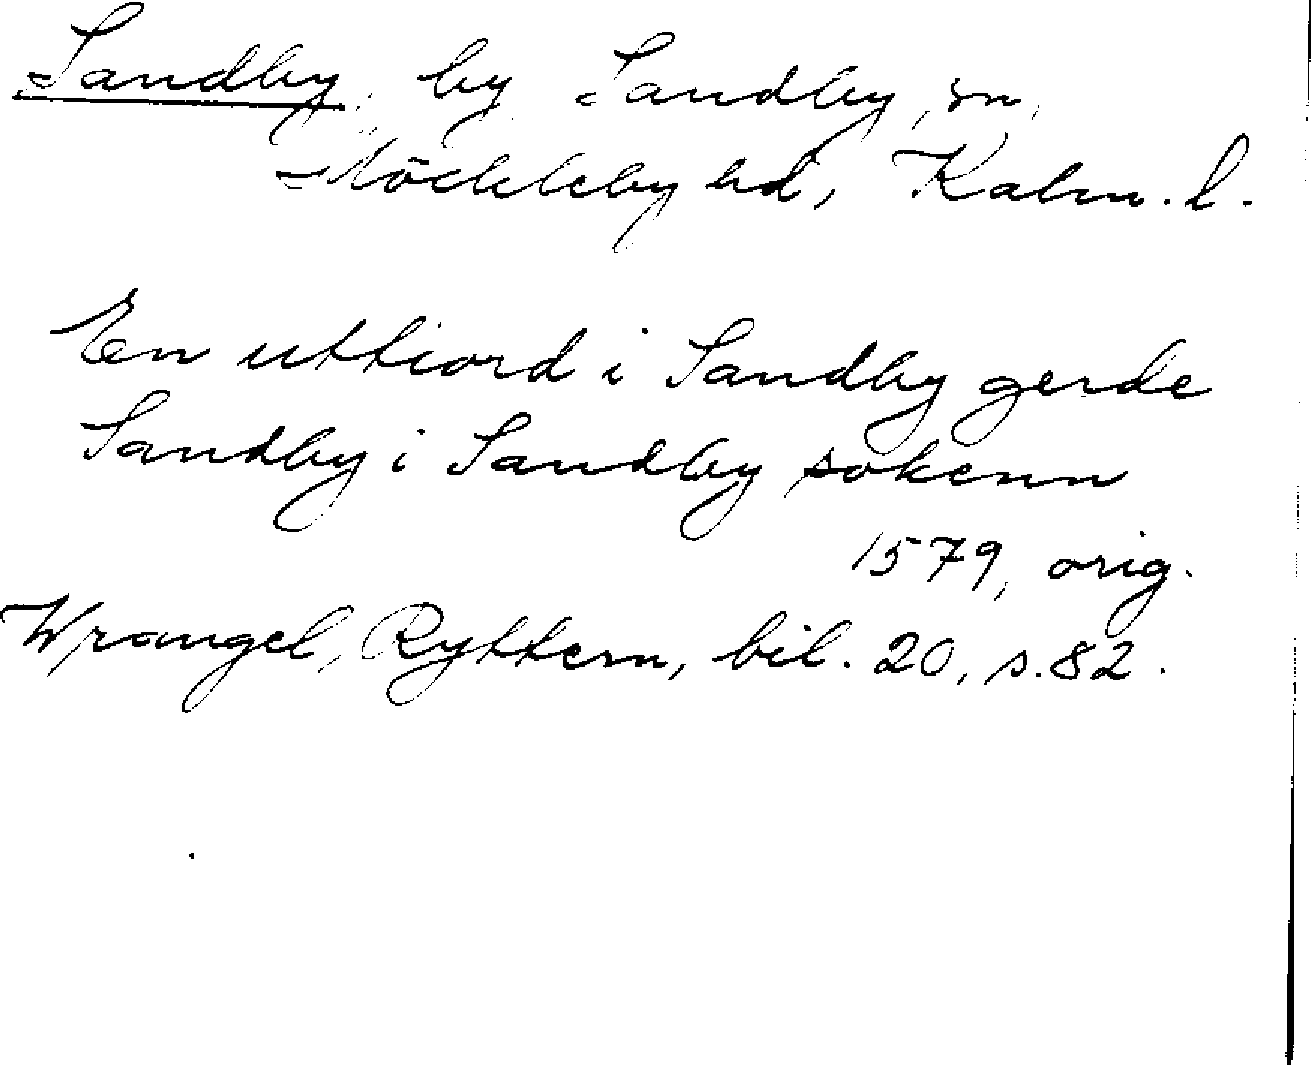 Sandby, by, Sandby sn,
Möckleby hd, Kalm. l.
En uttiord i Sandby gerde
Sandby i Sandby sokenn
1579, orig.
Wrangel, Ryttern, bil. 20, s. 82.